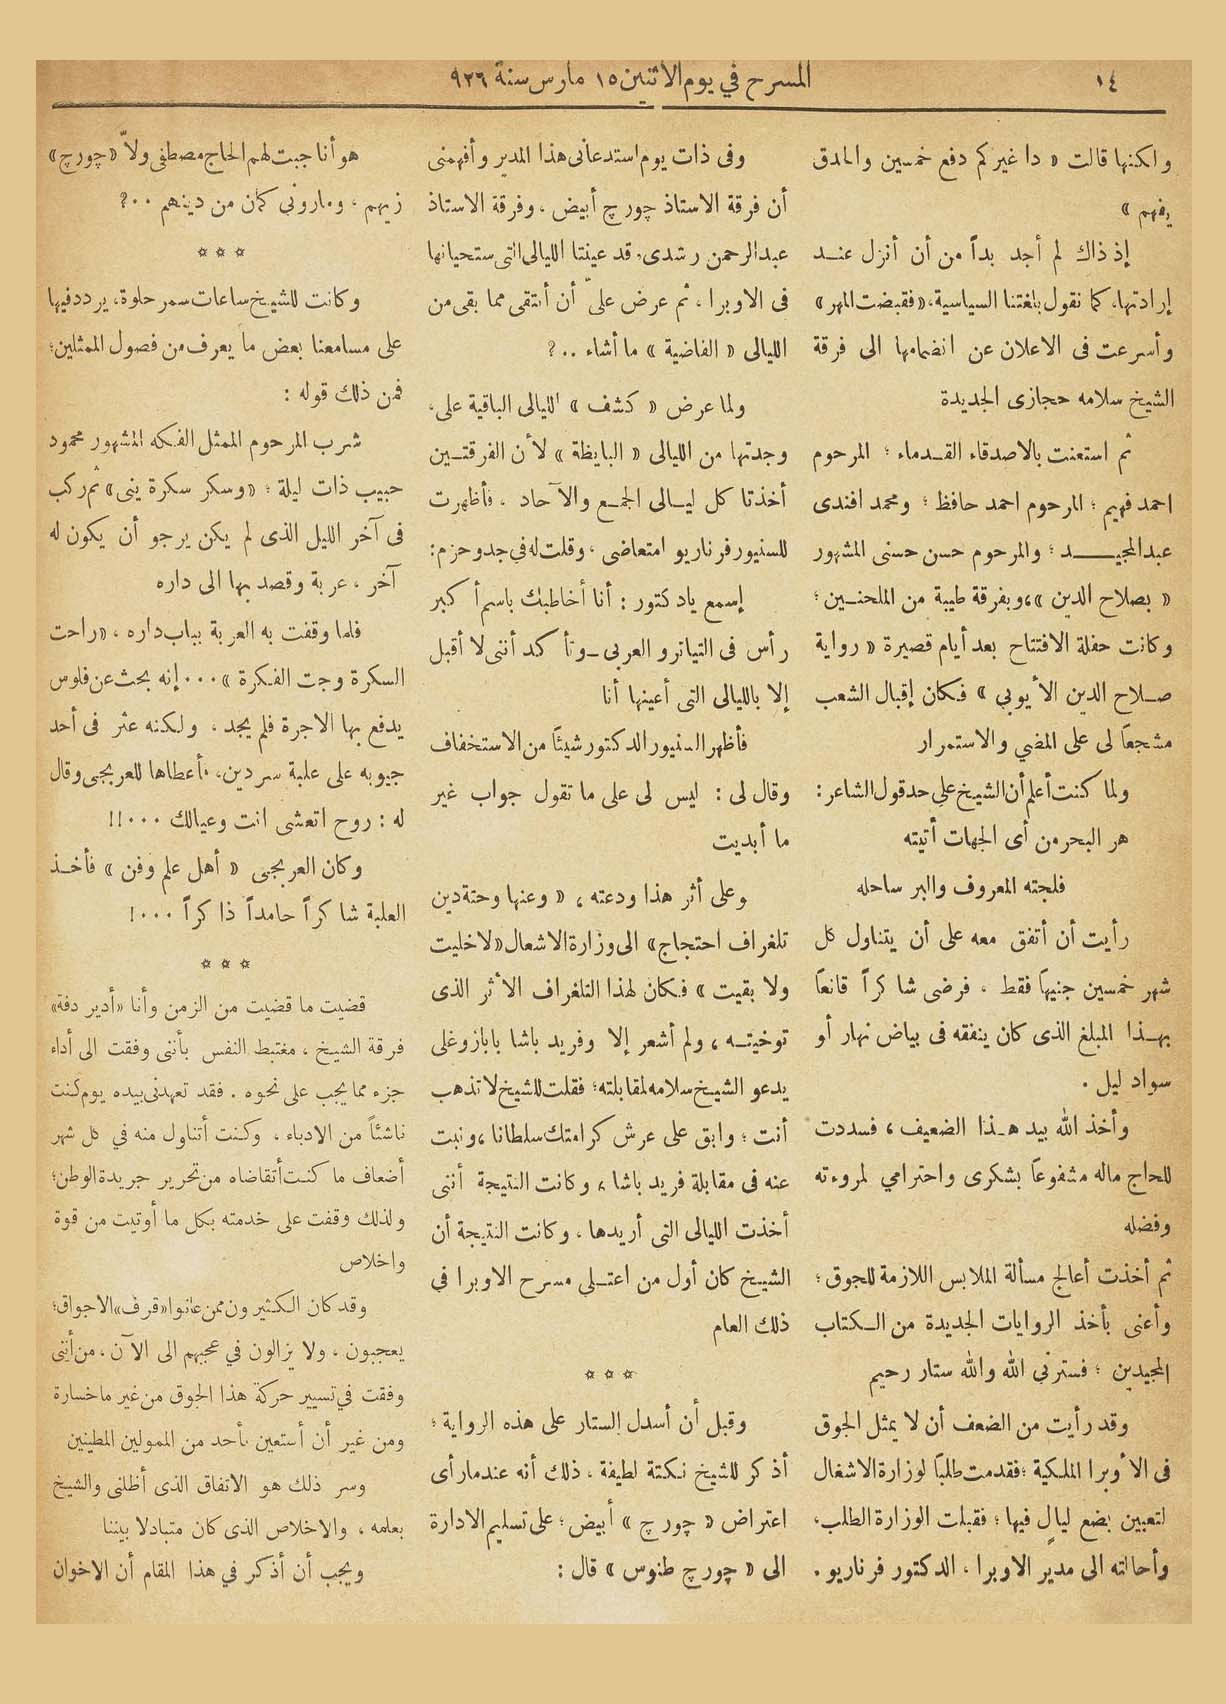 ١٤
المسرح في يوم الاثنين ١٥ مارس سنة ٩٢٦
ولكنها قالت « دا غيركم دفع خمسين والحدق
يفهم »
إذ ذاك لم أجد بداً من أن أنزل عنـد
إرادتها، كما نقول بلغتنا السياسية، «فقبضت المهر»
وأسرعت فى الاعلان عن انضمامها الى فرقة
الشيخ سلامه حجازى الجديدة
ثم استعنت بالاصدقاء القـدماء ؛ المرحوم
احمد فهيم ؛ المرحوم احمد حافظ ؛ ومحمد افندى
عبد المجيـــد ؛ والمرحوم حسن حسنى المشهور
« بصلاح الدين »، وبفرقة طيبة من الملحنـين ؛
وكانت حفلة الافتتاح بعد أيام قصيرة « رواية
صـلاح الدين الأيوبي » فكان إقبال الشعب
مشجعاً لى على المضي والاستمرار
ولما كنت أعلم أن الشيخ على حد قول الشاعر :
هر البحر من أى الجهات أتيته
فلجته المعروف والبر ساحله
رأيت أن أتفق معه على أن يتناول كل
شهر خمسين جنيهاً فقط ، فرضى شاكراً قانعاً
بهـذا المبلغ الذى كان ينفقه فى بياض نهار أو
سواد ليل .
وأخذ الله بيد هـذا الضعيف ، فسددت
للحاج ماله مشفوعاً بشكرى واحترامي لمروءته
وفضله
ثم أخذت أعالج مسألة الملابس اللازمة للجوق ؛
وأعنى بأخذ الروايات الجديدة من الـكتاب
المجيدين ؛ فسترني الله والله ستار رحيم
وقد رأيت من الضعف أن لا يمثل الجوق
فى الأوبرا الملكية ؛ فقدمت طلباً لوزارة الاشغال
لتعيين بضع ليالٍ فيها ؛ فقبلت الوزارة الطلب،
وأحالته الى مدير الاوبرا ، الدكتور فرناريو .
وفى ذات يوم استدعانى هذا المدير وأفهمنى
أن فرقة الاستاذ چورچ أبيض ، وفرقة الاستاذ
عبد الرحمن رشدى، قد عينتا الليالى التى ستحيانها
فى الاوبرا ، ثم عرض علىّ أن أنتقى مما بقى من
الليالى « الفاضية » ما أشاء ..؟
ولما عرض « كشف » الليالى الباقية على،
وجدتها من الليالى « البايظة » لأن الفرقتـين
أخذتا كل ليـالى الجمـع والآحاد ، فأظهرت
للسنيور فرناريو امتعاضى ، وقلت له في جد وحزم :
إسمع يادكتور : أنا أخاطبك باسم أكبر
رأس فى التياترو العربى ــ وتأكد أننى لا أقبل
إلا بالليالى التى أعينها أنا
فأظهر السنيور الدكتور شيئاً من الاستخفاف
وقال لى : ليس لى على ما تقول جواب غير
ما أبديت
وعلى أثر هذا ودعته ، « وعنها وحتة دين
تلغراف احتجاج» الى وزارة الاشعال «لا خليت
ولا بقيت » فكان لهذا التلغراف الأثر الذى
توخيتـه ، ولم أشعر إلا وفريد باشا بابازوغلى
يدعو الشيخ سلامه لمقابلته؛ فقلت للشيخ لا تذهب
أنت ؛ وابق على عرش كرامتك سلطانا ، ونبت
عنه فى مقابلة فريد باشا ، وكانت النتيجة أننى
أخذت الليالى التى أريدها ، وكانت النتيجة أن
الشيخ كان أول من اعتـلى مسرح الاوبرا فى
ذلك العام
* * *
وقبل أن أسدل الستار على هذه الرواية ؛
أذكر للشيخ نكتة لطيفة ، ذلك أنه عندما رأى
اعتراض « چورچ » أبيض ؛ على تسليم الادارة
الى « چورچ طنوس » قال :
هو أنا جبت لهم الحاج مصطفى ولاّ «چورچ»
زيهم ، وماروني كمان من دينهم ٠٠؟
* * *
وكانت للشيخ ساعات سمر حلوة، يردد فيها
على مسامعنا بعض ما يعرف من فصول الممثلين؛
فمن ذلك قوله :
شرب المرحوم الممثل الفكه المشهور محمود
حبيب ذات ليلة ؛ «وسكر سكرة ينى» ثم ركب
فى آخر الليل الذى لم يكن يرجو أن يكون له
آخر ، عربة وقصد بها الى داره
فلما وقفت به العربة بباب داره ، «راحت
السكرة وجت الفكرة » ٠٠٠ إنه بحث عن فلوس
يدفع بها الاجرة فلم يجد ، ولكنه عثر فى أحد
جيوبه على علبة سردين، فأعطاها للعربجى وقال
له : روح اتعشى انت وعيالك ٠٠٠!!
وكان العربجى « أهل علم وفن » فأخـذ
العلبة شاكراً حامداً ذاكراً ٠٠٠!
* * *
قضيت ما قضيت من الزمن وأنا «أدير دفة»
فرقة الشيخ ، مغتبط النفس بأننى وفقت الى أداء
جزء مما يجب على نحوه . فقد تعهدنى بيده يوم كنت
ناشئاً من الادباء ، وكنت أتناول منه في كل شهر
أضعاف ما كنت أتقاضاه من تحرير جريدة الوطن؛
ولذلك وقفت على خدمته بكل ما أوتيت من قوة
واخلاص
وقد كان الكثيرون ممن عانوا «قرف» الاجواق؛
يعجبون ، ولا يزالون في عجبهم الى الآن ، من أننى
وفقت في تسيير حركة هذا الجوق من غير ما خسارة
ومن غير أن أستعين بأحد من الممولين المطينين
وسر ذلك هو الاتفاق الذى أظلنى والشيخ
بعامه ، والاخلاص الذى كان متبادلا بيننا
ويجب أن أذكر في هذا المقام أن الاخوان